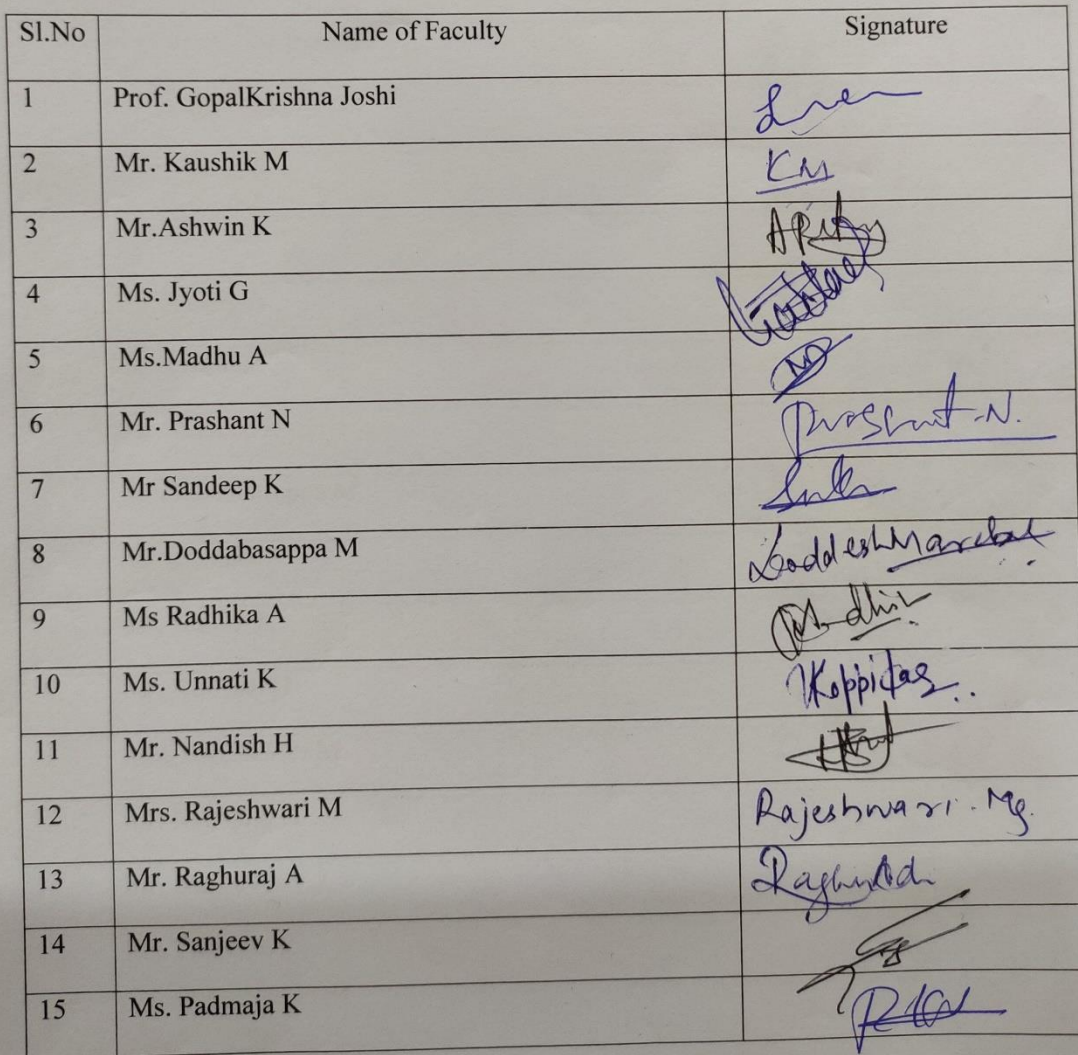 Sl.No Name of Faculty Signature
1 Prof. GopalKrishna Joshi
2 Mr. Kaushik M KM
3 Mr.Ashwin K
4 Ms. Jyoti G
5 Ms.Madhu A
6 Mr. Prashant N Prashant.N.
7 Mr Sandeep K
8 Mr.Doddabasappa M
9 Ms Radhika A
10 Ms. Unnati K
11 Mr. Nandish H
12 Mrs. Rajeshwari M Rajeshwari. Mg.
13 Mr. Raghuraj A
14 Mr. Sanjeev K
15 Ms. Padmaja K